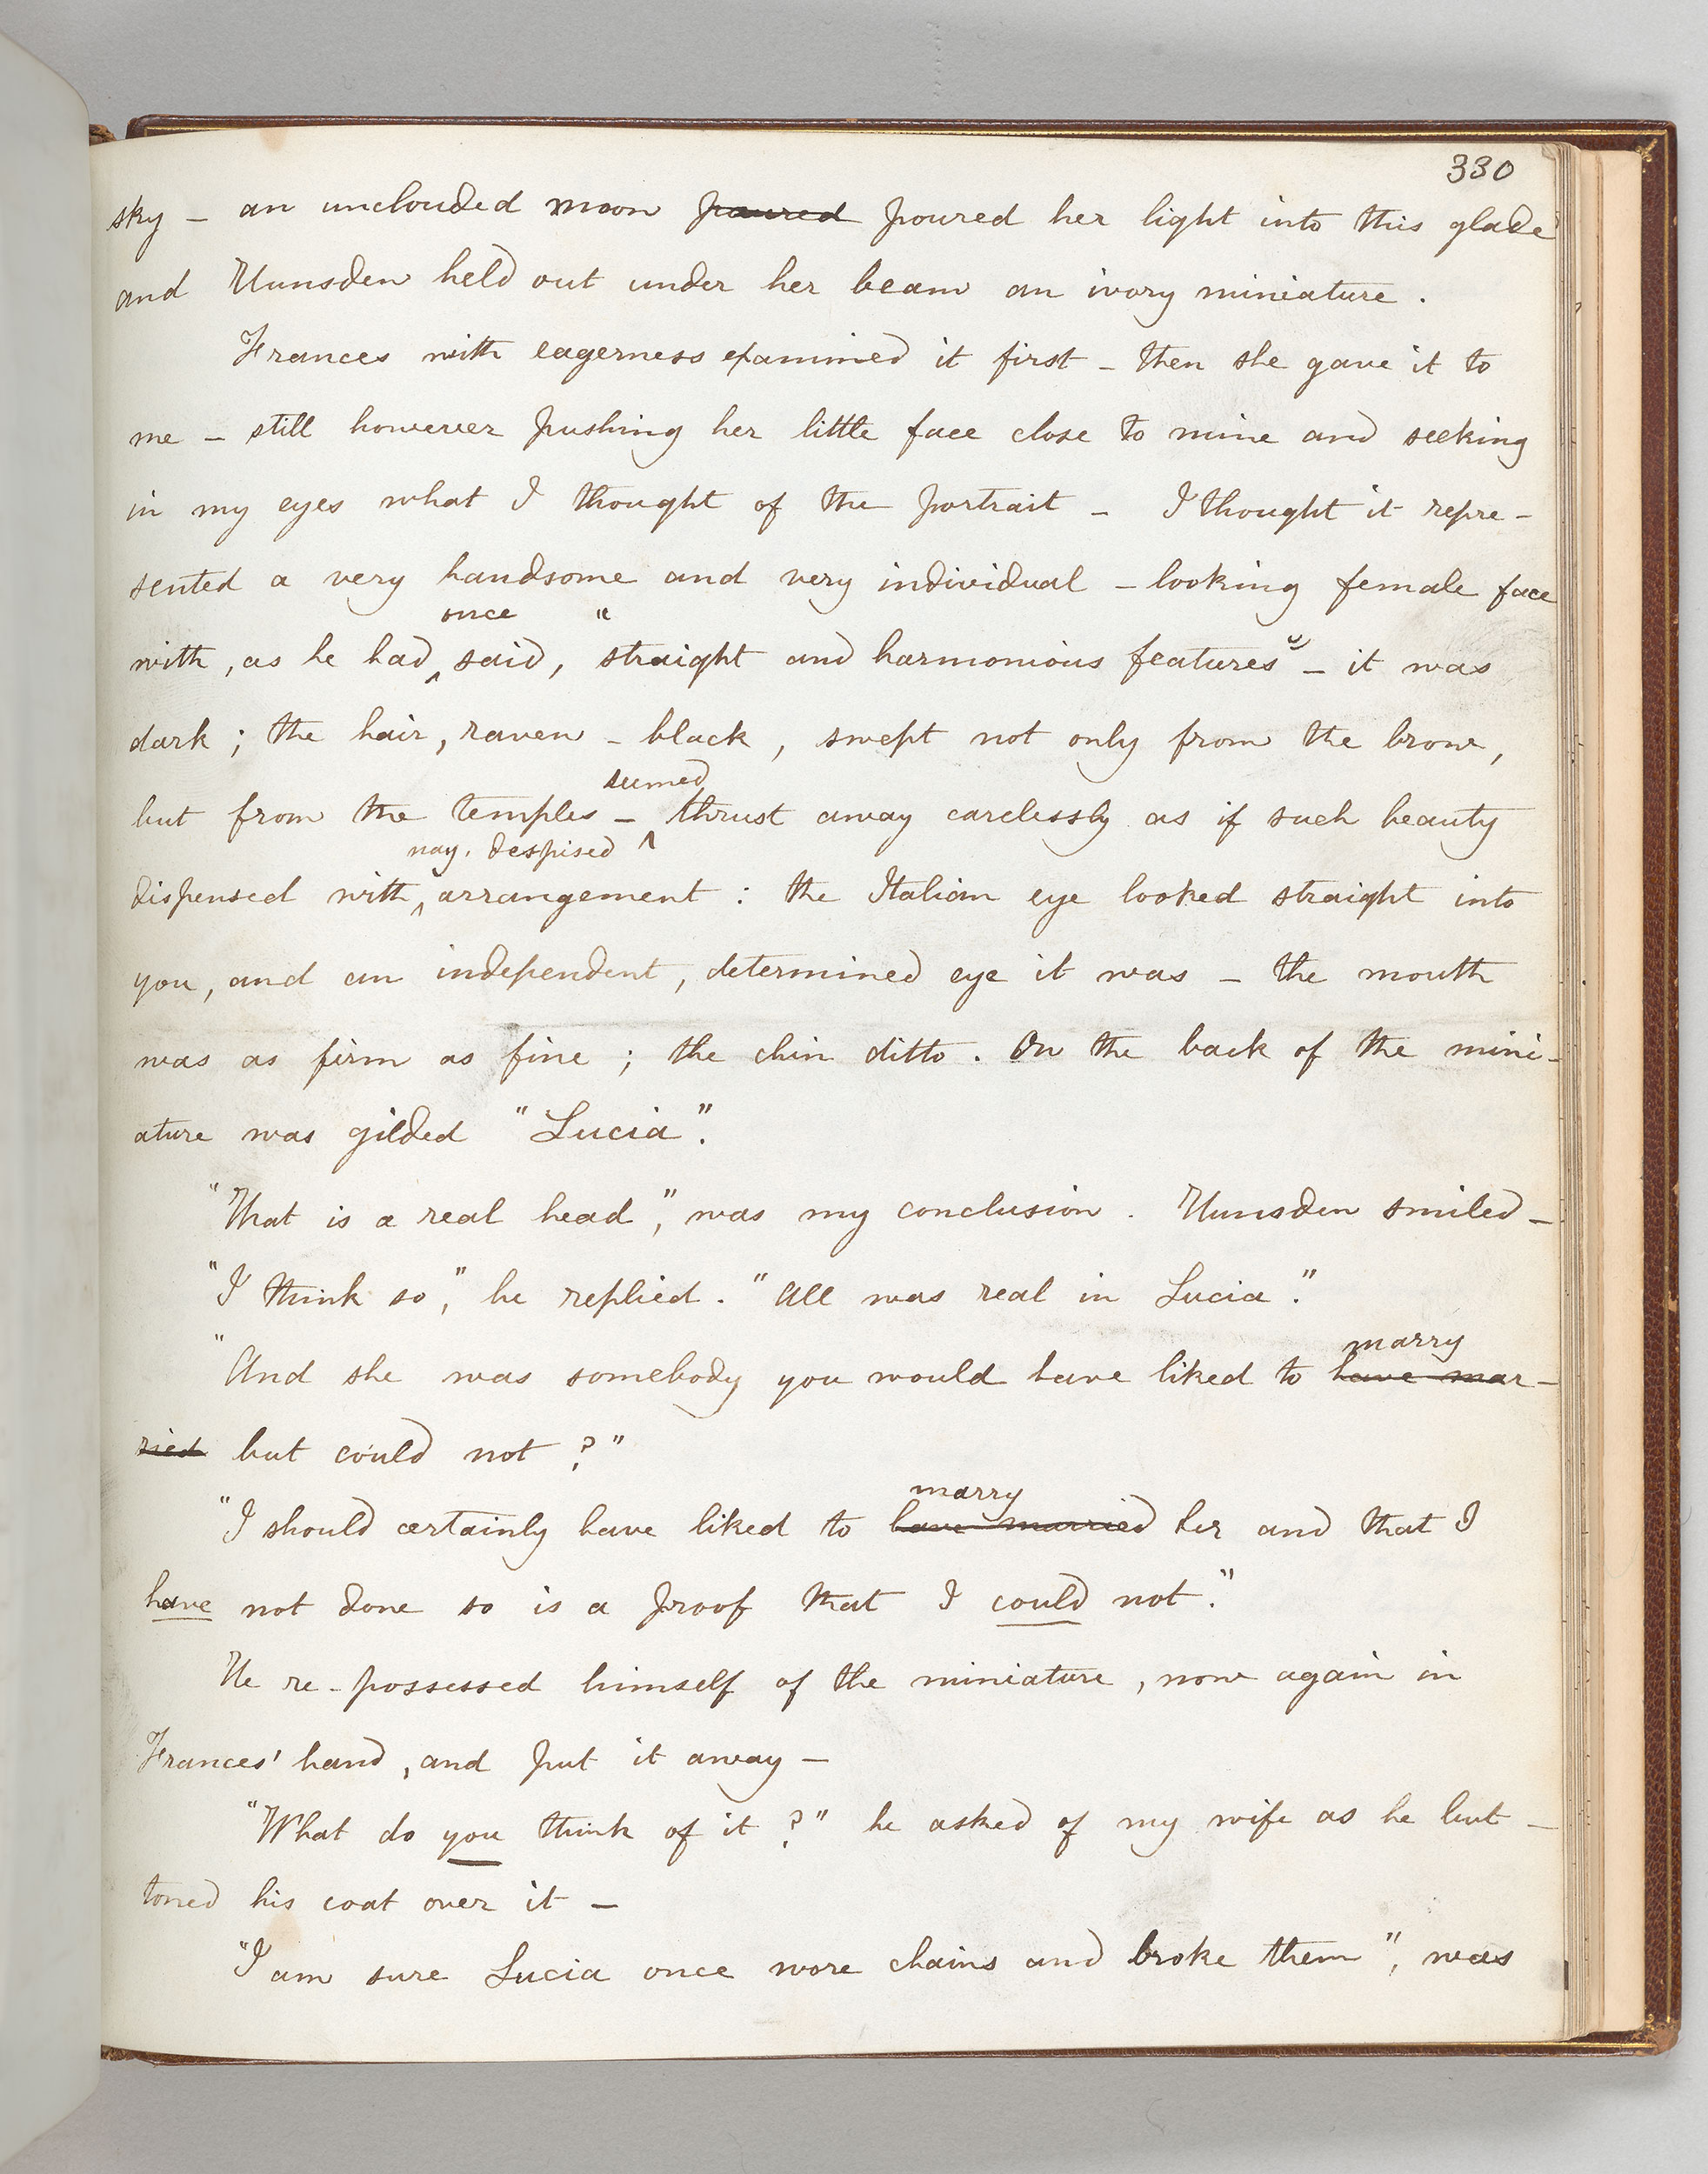 330
sky – an unclouded moon poured poured her light into this glade
and Hunsden held out under her beam an ivory miniature .
Frances with eagerness examined it first – then she gave it to
me – still however pushing her little face close to mine and seeking
in my eyes what I thought of the portrait – I thought it repre-
sented a very handsome and very individual - looking female face
once "
with , as he had ^ said , straight and harmonious features " – it was
dark ; the hair , raven - black , swept not only from the brow ,
seemed
but from the temples – ^ thrust away carelessly as if such beauty
nay , despised
dispensed with ^ arrangement : the Italian eye looked straight into
you , and an independent , determined eye it was – the mouth
was as firm as fine ; the chin ditto . On the back of the mini-
ature was gilded " Lucia " .
"That is a real head , " was my conclusion . Hunsden smiled –
"I think so , " he replied . " All was real in Lucia . "
marry
"And she was somebody you would have liked to have mar-
ried but could not ? "
marry
"I should certainly have liked to have married her and that I
have not done so is a proof that I could not . "
He re-possessed himself of the miniature , now again in
Frances' hand , and put it away –
"What do you think of it ? " he asked of my wife as he but-
toned his coat over it –
"I am sure Lucia once wore chains and broke them " , was